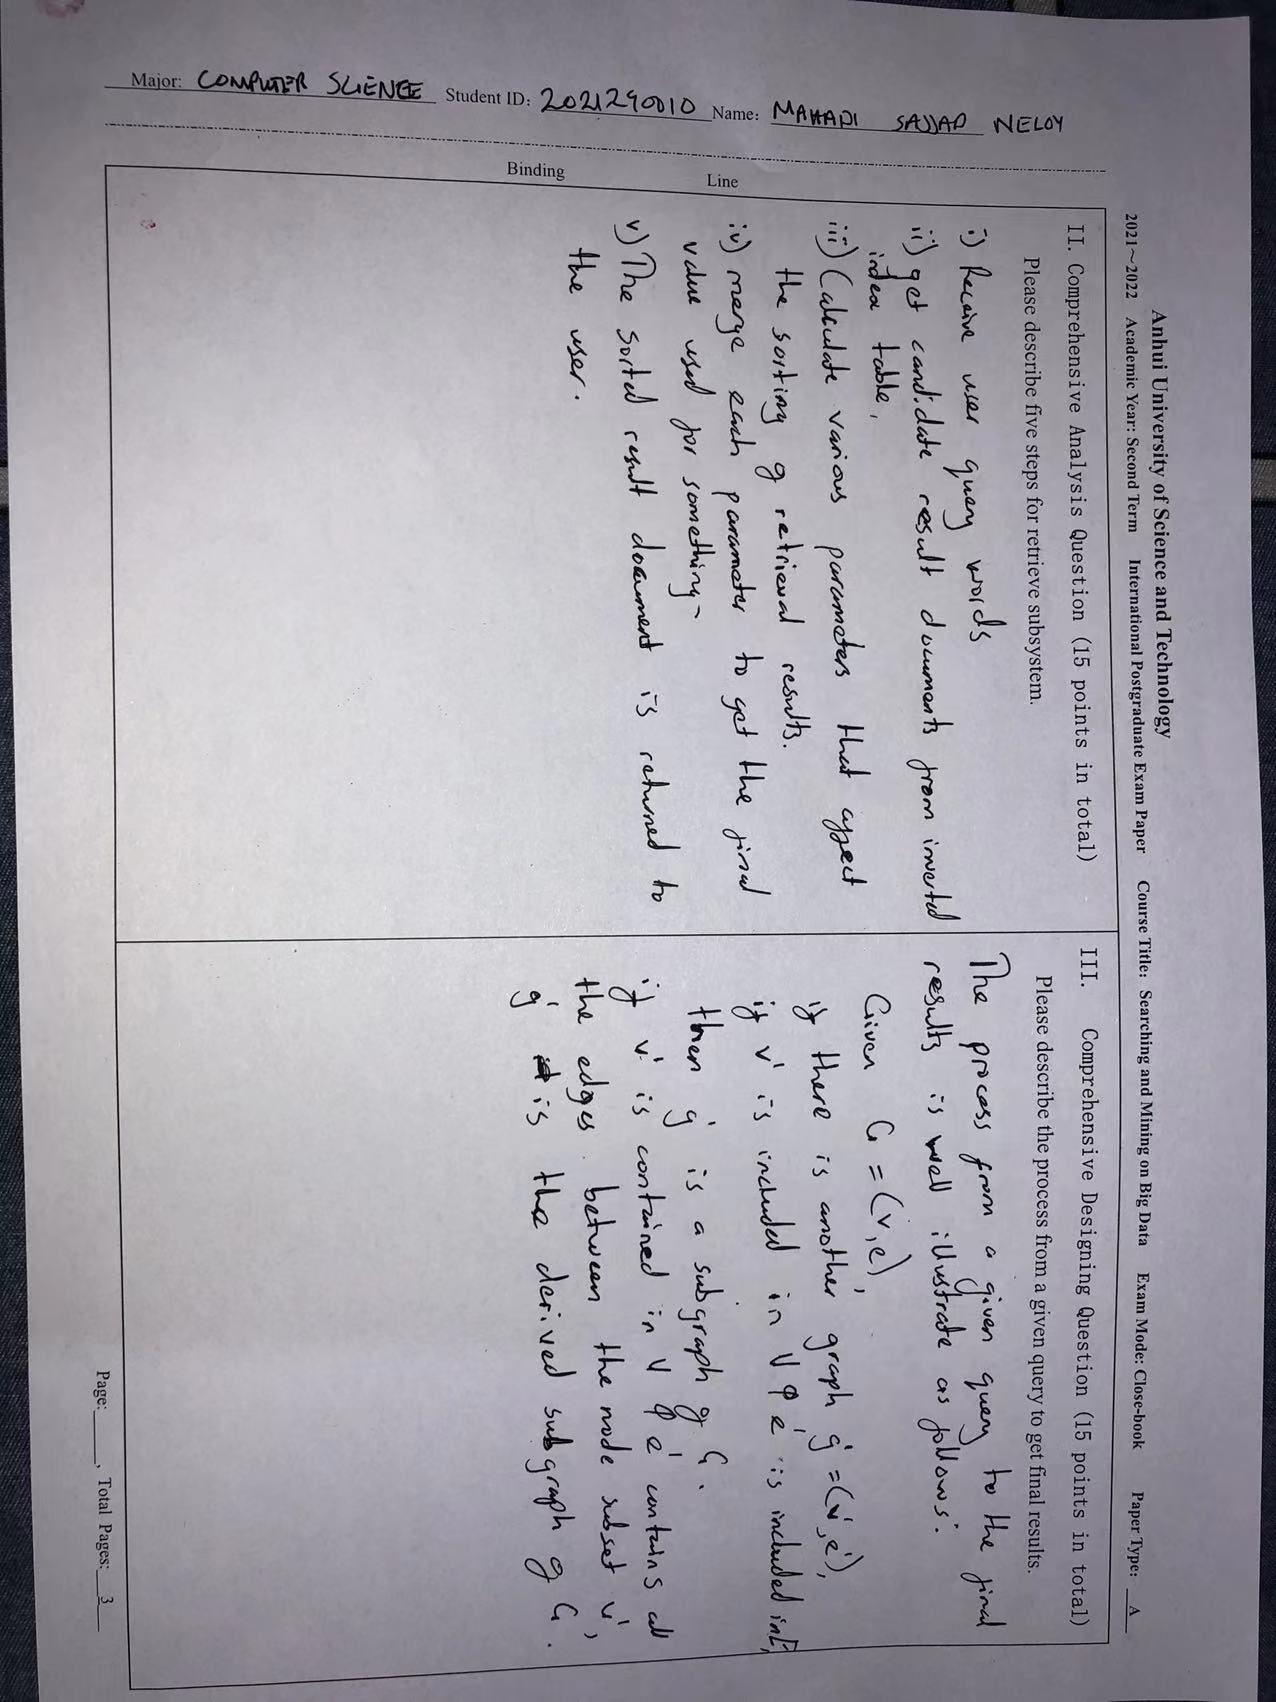 Anhui University of Science and Technology
2021～2022 Academic Year: Second Term International Postgraduate Exam Paper Course Title: Searching and Mining on Big Data Exam Mode: Close-book Paper Type: A
Major: COMPUTER SCIENCE Student ID: 2021290010 Name: MAHADI SAJJAD NELOY
Binding Line
II. Comprehensive Analysis Question (15 points in total)
Please describe five steps for retrieve subsystem.
i) Receive user query words
ii) get candidate result documents from inverted
index table,
iii) Calculate various parameters that affect
the sorting of retrieval results.
iv) merge each parameter to get the final
value used for something-
v) The sorted result document is returned to
the user.
III. Comprehensive Designing Question (15 points in total)
Please describe the process from a given query to get final results.
The process from a given query to the final
results is well illustrate as follows:
Given G = (v,e),
if there is another graph g' = (v',e'),
if v' is included in V & e' is included in E,
then g' is a subgraph of G.
if v' is contained in V & e' contains all
the edges between the node subset v',
g' is the derived subgraph of G.
Page: , Total Pages: 3